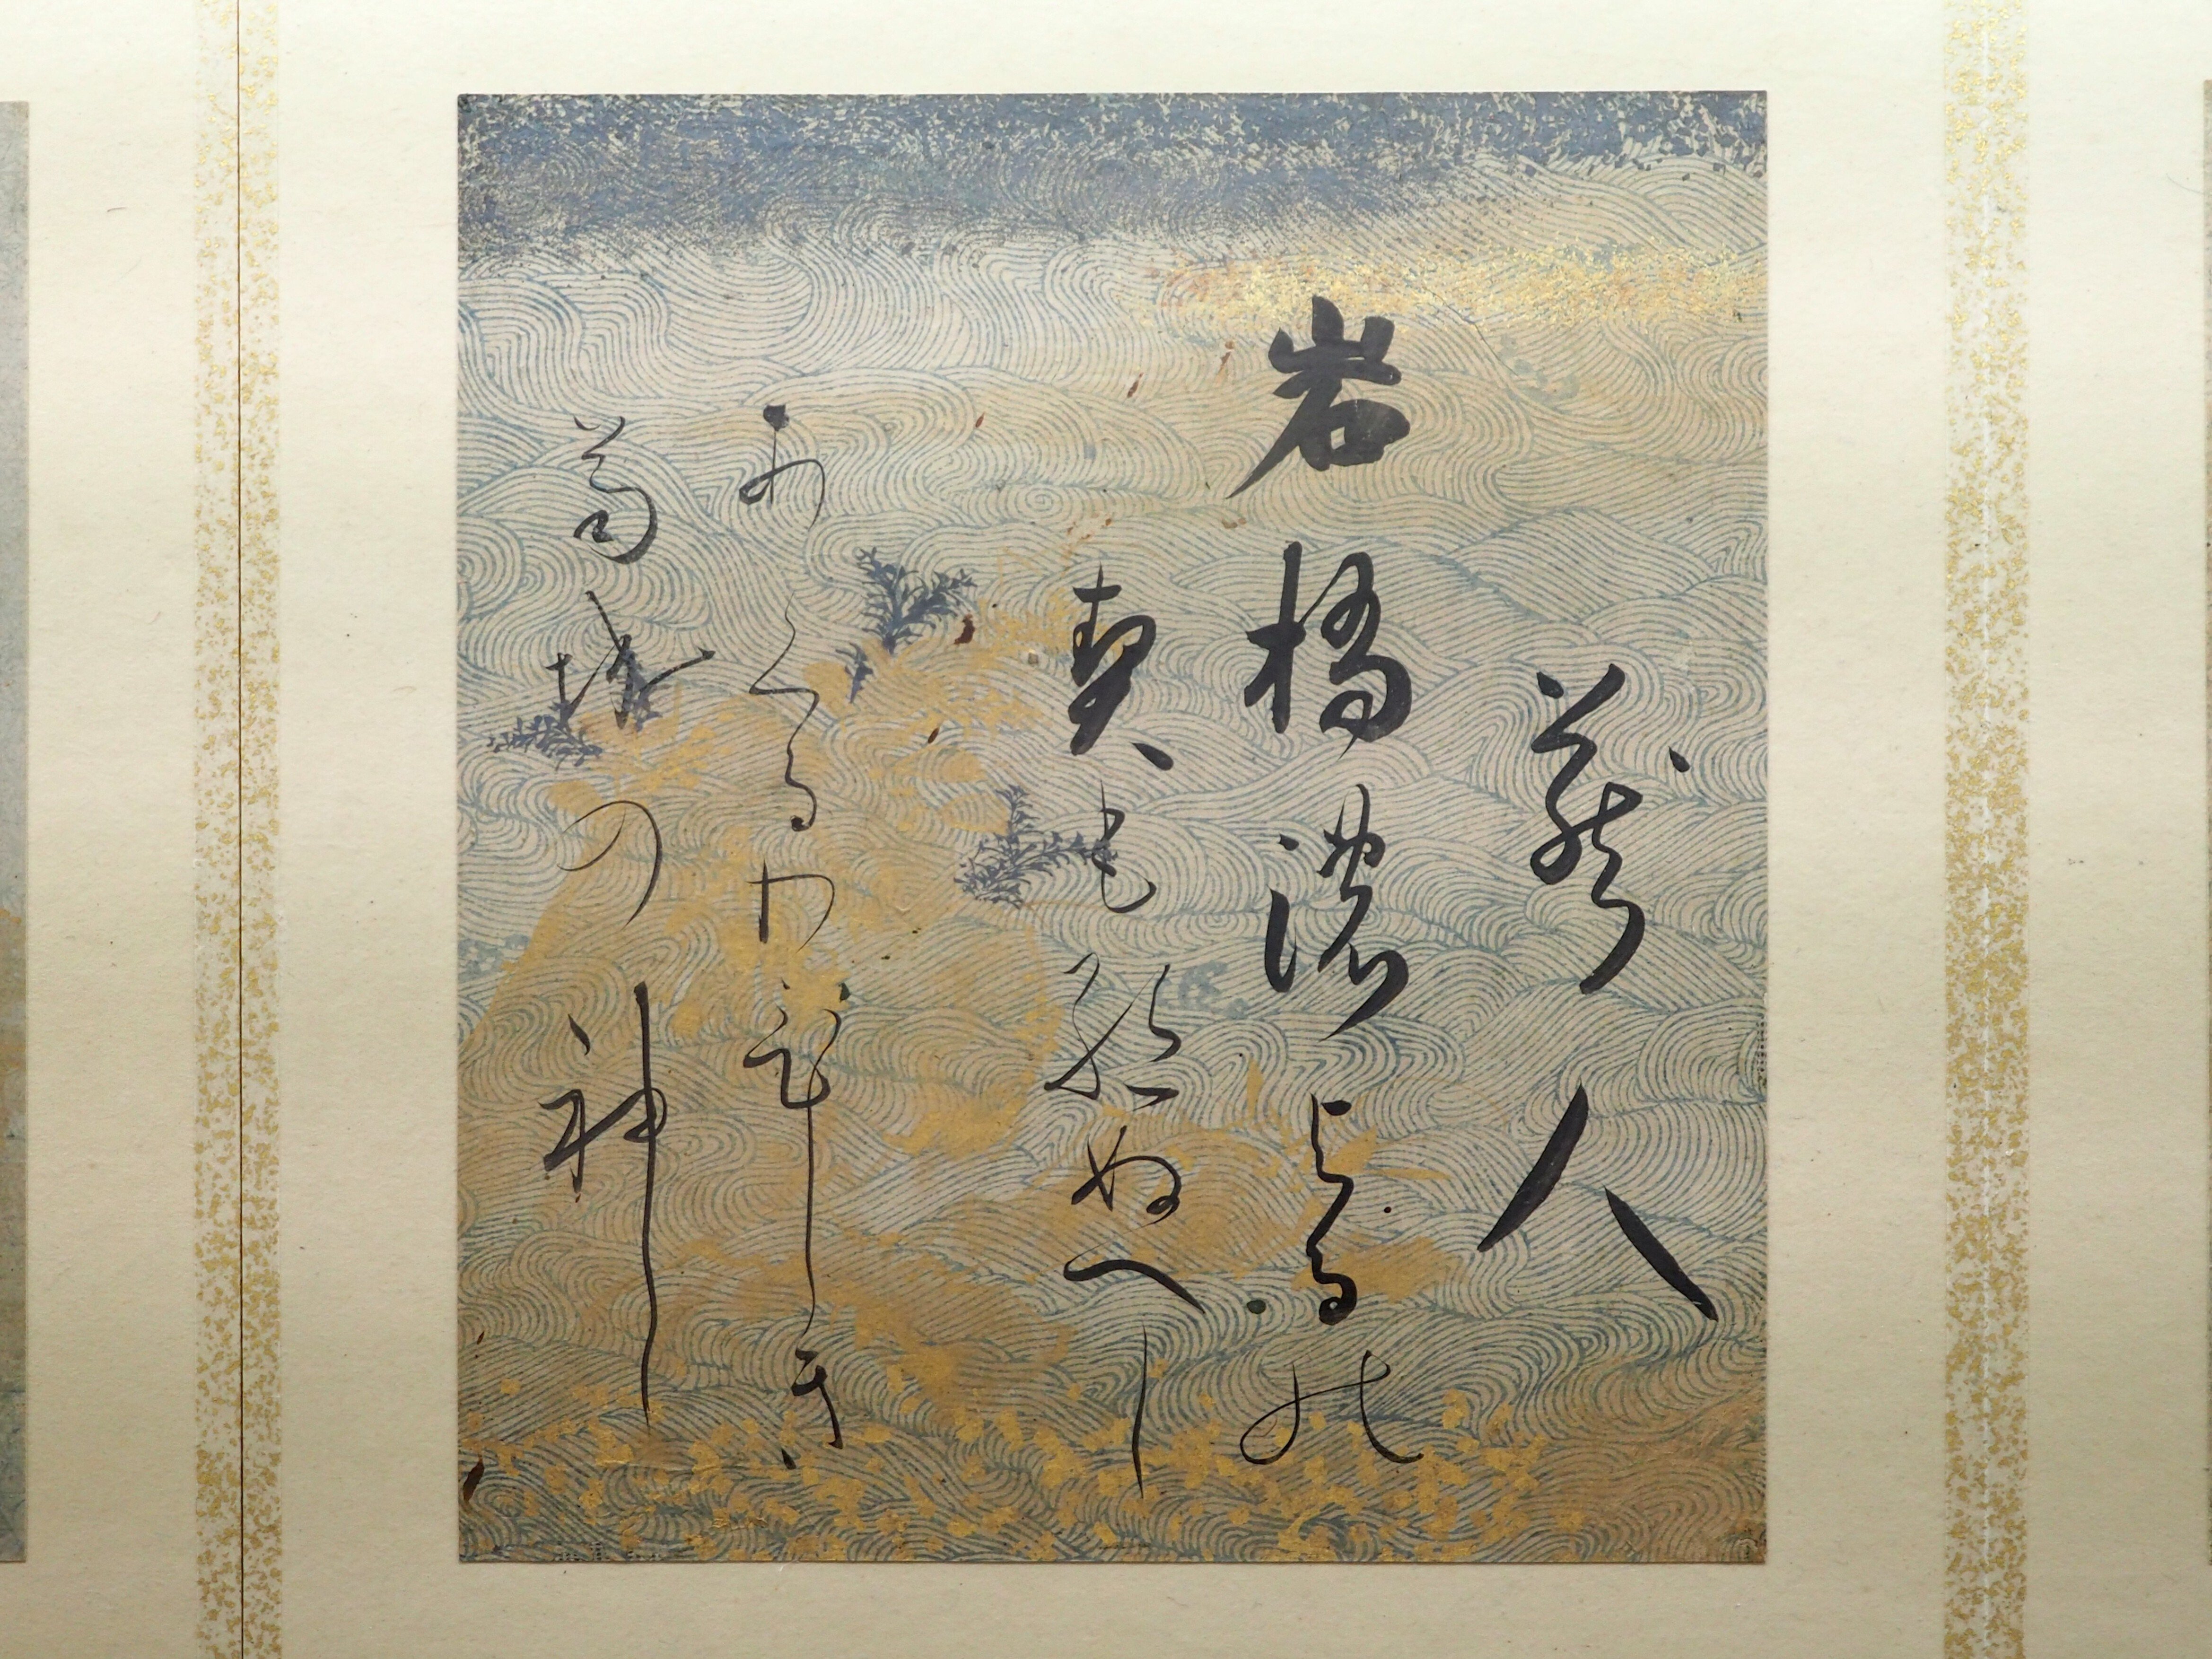 蔵人
岩橋濃よるの
契も絶ぬへし
あくるわひしき
葛城の神